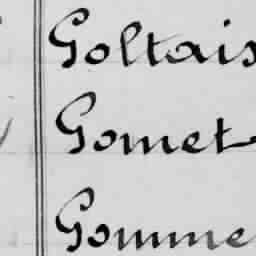 Goltais
Gomet
Gomme